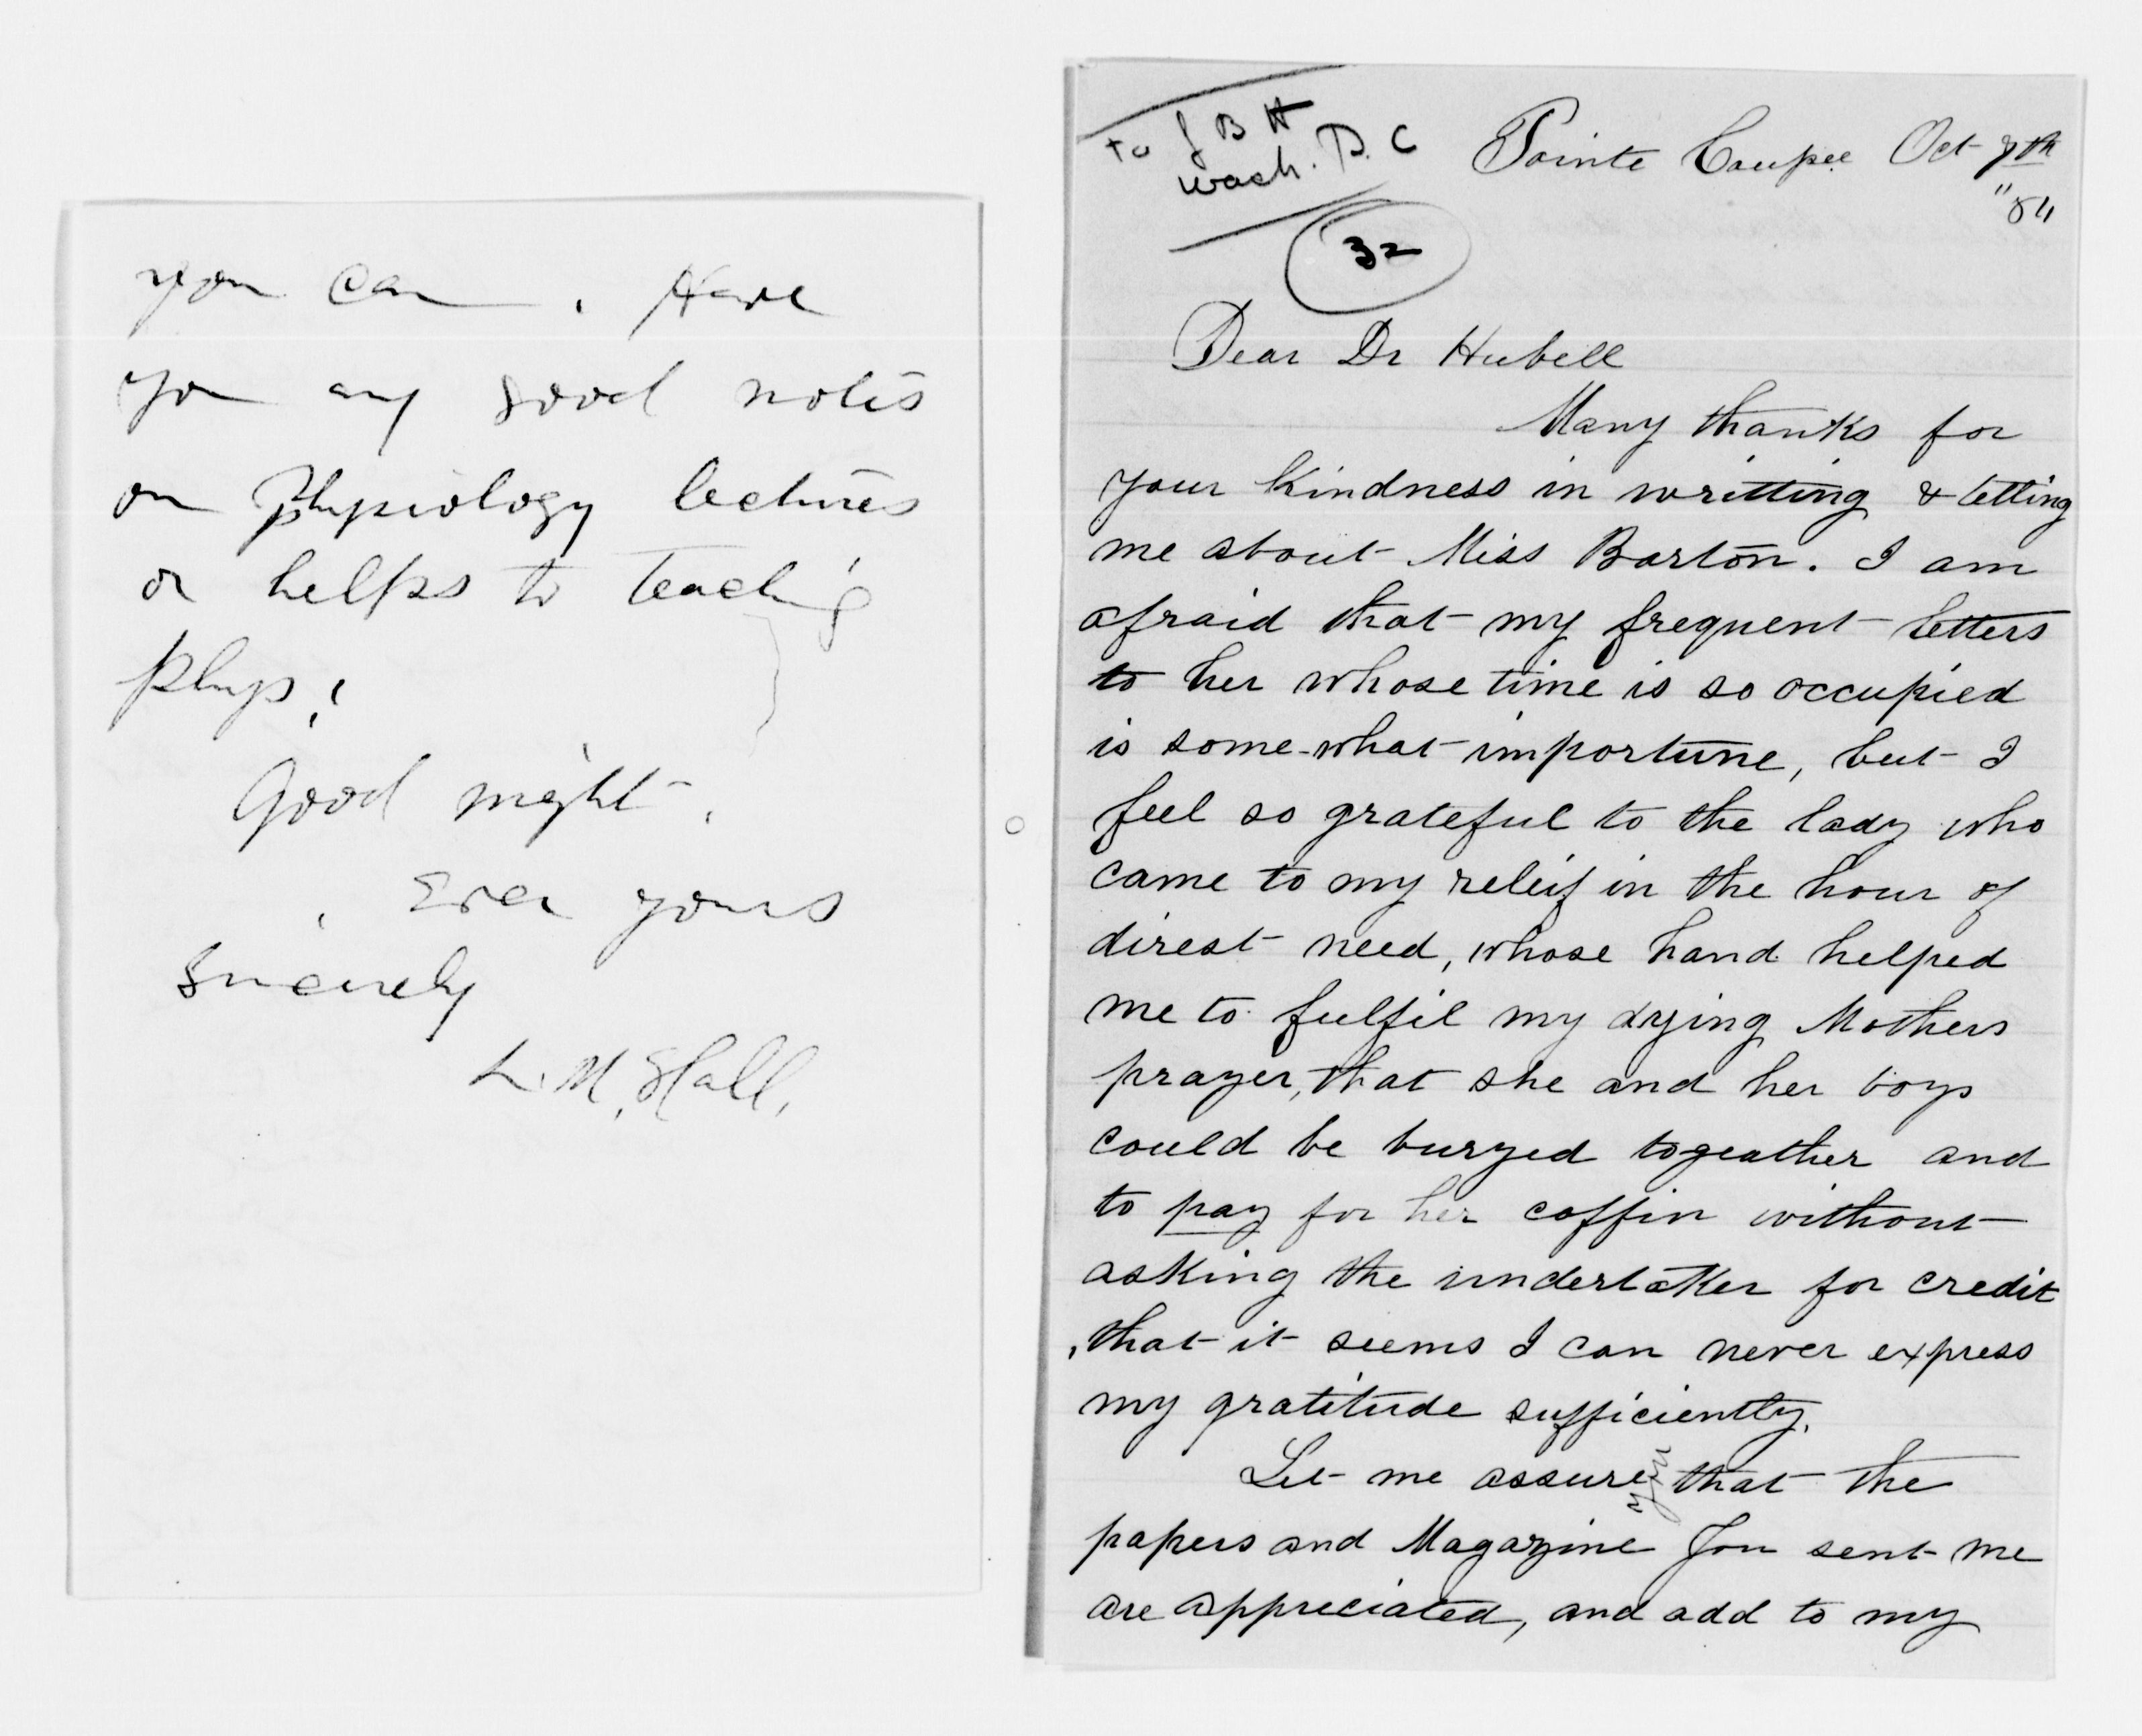 you can. Have
you any good notes
on Physiology lectures
or helps to teaching
Phys.?
Good night.
Ever yours
Sincerely
L. M. Hall.
to J B H
Wash. D. C
Pointe Coupee Oct 7th
"84
32
Dear Dr Hubell
Many thanks for
your kindness in writting & telling
me about Miss Barton. I am
afraid that my frequent letters
to her whose time is so occupied
is some-what importune, but I
feel so grateful to the lady who
came to my releif in the hour of
direst need, whose hand helped
me to fulfil my dying Mothers
prayer, that she and her boys
could be buryed togeather and
to pay for her coffin without
asking the undertaker for credit
, that it seems I can never express
my gratitude sufficiently.
Let me assure you that the
papers and Magazine you sent me
are appreciated, and add to my